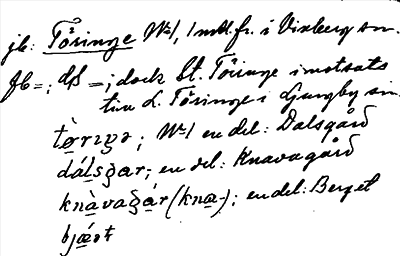 jb: Töringe No 1, 1 mtl. fr. i Vinberg sn.
Jb =; dS =; dock St. Töringe i motsats
till L. Töringe i Ljungby sn
tø̀rıŋə; No 1 en del: Dalsgård
dálsgar; en del: Knavagård
knàvagár (kna-); en del: Berget
bjǽrt